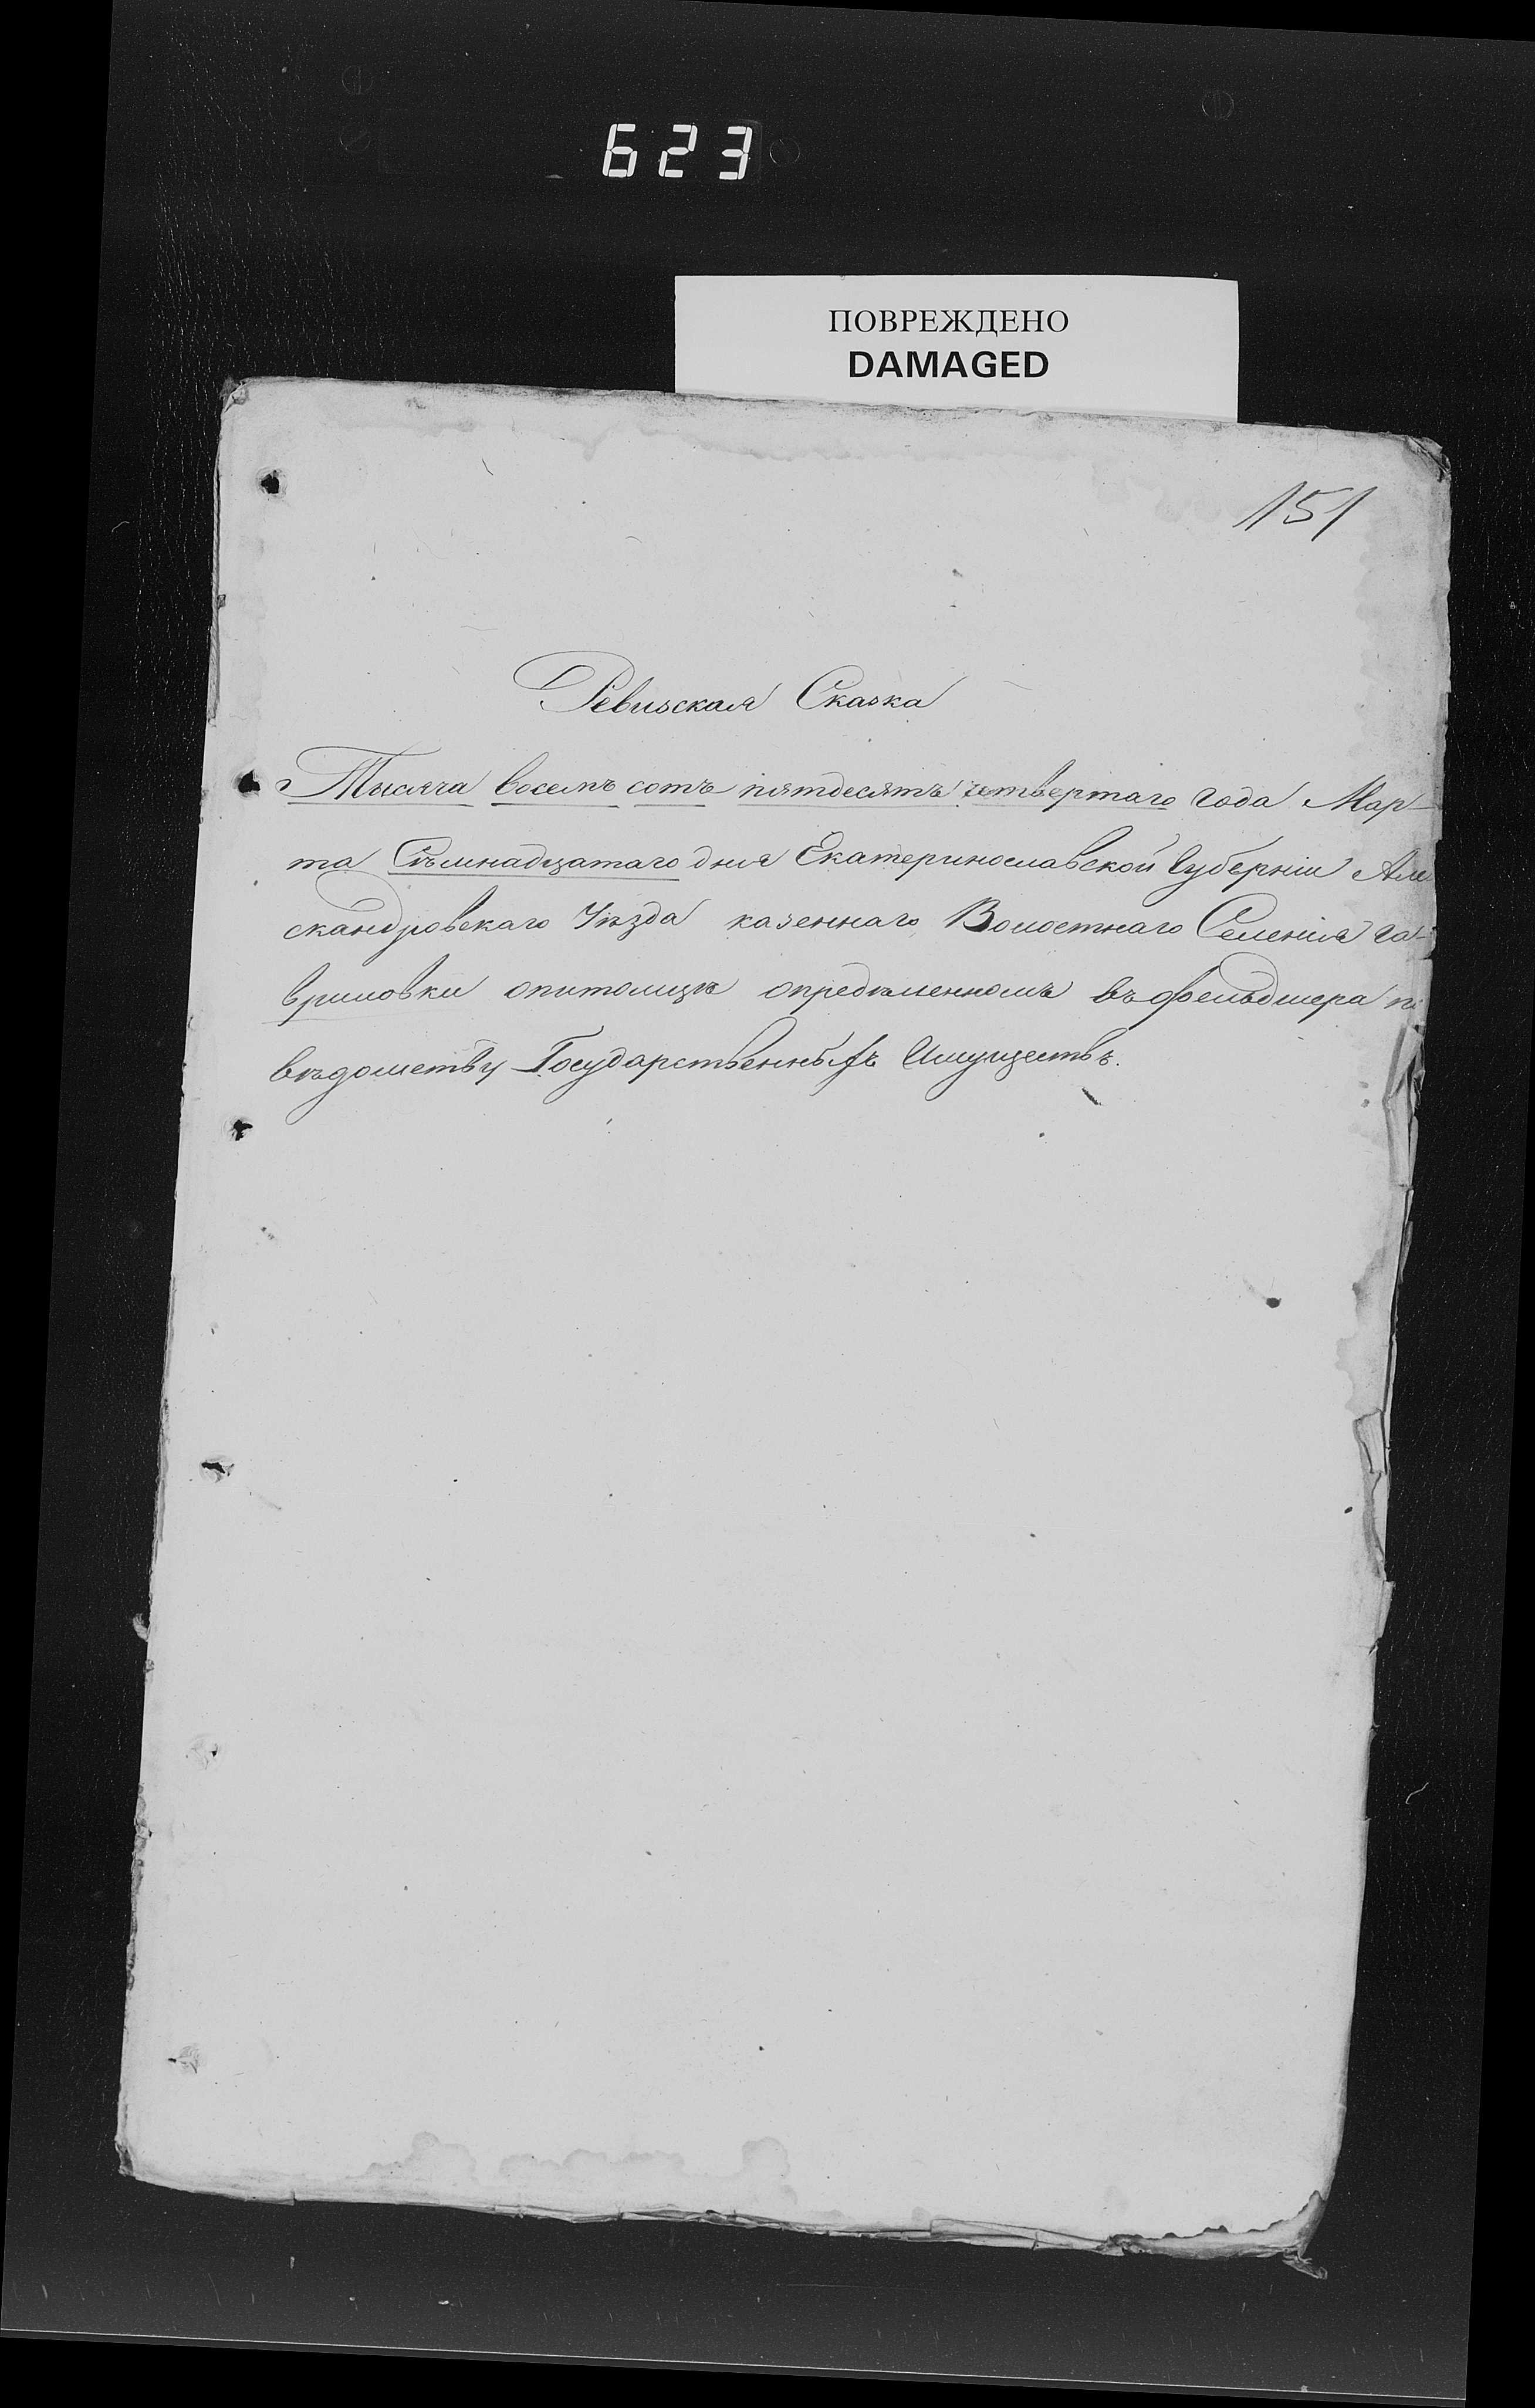 623
ПОВРЕЖДЕНО
DAMAGED
151
Ревизская Сказка
Тысяча восемъ сотъ пятдесятъ четвертаго года Мар-
та Сѣмнадцатаго дня Екатеринославской Губерніи Але
скандровскаго Уѣзда казеннаго Волостнаго Селенія Га-
вриловки опитомцѣ опредѣленномъ въ фельдшера по
вѣдомству Государственныхъ Имуществъ.